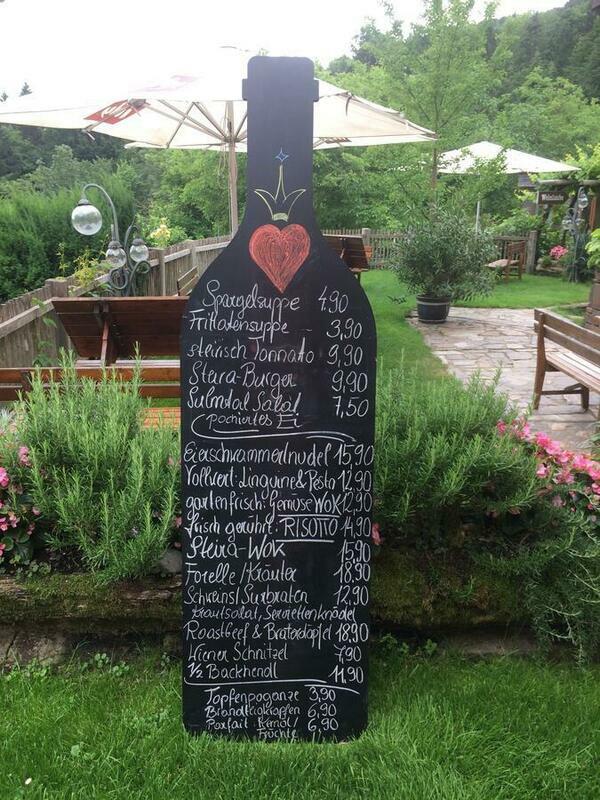 Spargelsuppe 4,90
Frittatensuppe - 3,90
steirisch Tonnato 9,90
Steira-Burger 9,90
Sulmtal Salat 7,50
pochiertes Ei
Eierschwammerlnudel 15,90
Vollwert: Linguine & Pesto 12,90
gartenfrisch: Gemüse WOK 12,90
frisch gerührt: RISOTTO 14,90
Steira-WOK 15,90
Forelle / Kräuter 18,90
Schweinsl Surbraten 12,90
Krautsalat, Serviettenknödel
Roastbeef & Braterdäpfel 18,90
Wiener Schnitzel 7,90
1/2 Backhendl 11,90
Topfenpoganze 3,90
Brandteigkrapfen 6,90
Parfait Kernöl / 6,90
Früchte